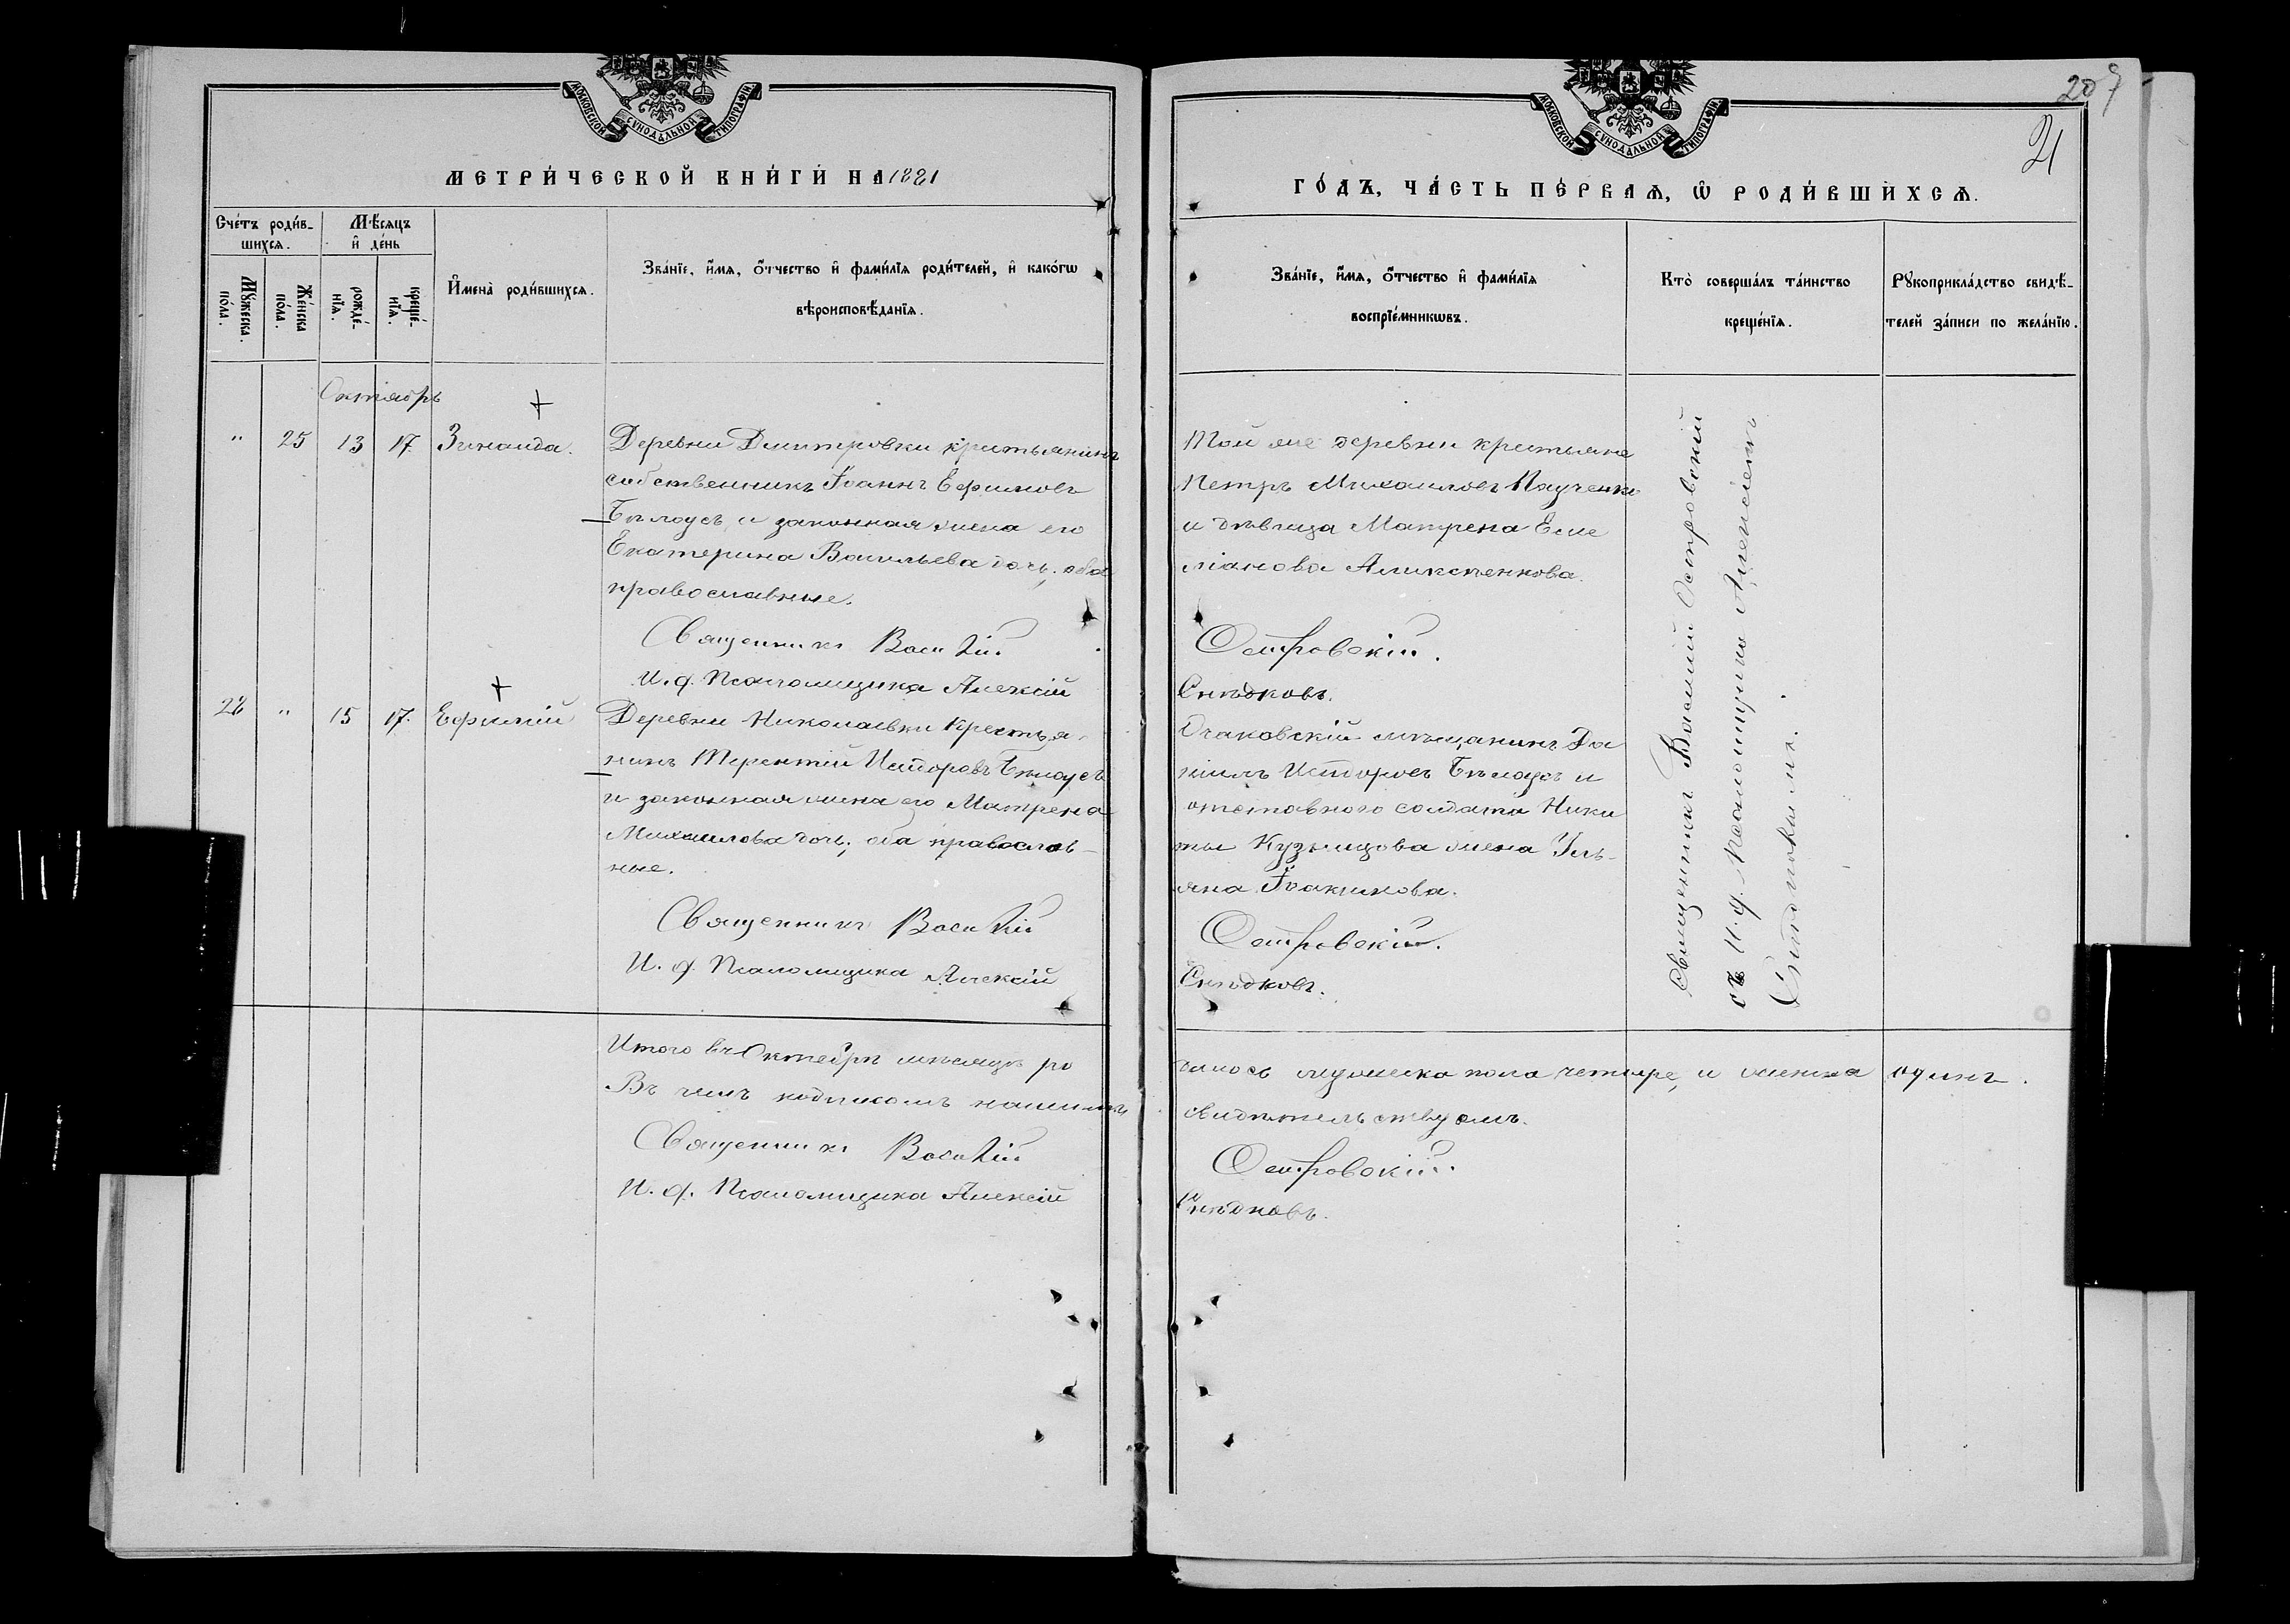 МОСКОВСКОЙ СѴНОДАЛЬНОЙ ТИПОГРАФІИ
МЕТРИ́ЧЕСКОЙ КНИ́ГИ НА 1881
Сче́тъ роди́в-
шихся.
Мѣ́сяцъ
и҆ де́нь
Мꙋ́жеска по́ла.
Же́нска по́ла.
рожде́-
нїѧ.
креще́-
нїѧ.
И҆мена̀ роди́вшихсѧ.
Зва́нїе, и҆́мѧ, ѻ҆́тчество и҆ фами́лїѧ роди́телей, и҆ како́гѡ
вѣроисповѣ́данїѧ.
Октябрь
" 25 13 17. Зинаида.
Деревни Дмитровки крестьянинъ
собственникъ Іоаннъ Ефимовъ
Бѣлоусъ и законная жена его
Екатерина Васильева дочь; оба
православные.
Священникъ Василій
И. д. Псаломщика Алексій
28 " 15 17. Ефимій
Деревни Николаевки Крестья-
нинъ Терентій Исидоровъ Бѣлоусъ
и законная жена его Матрена
Михаилова дочь; оба православ-
ные.
Священникъ Василій
И. д. Псаломщика Алексій
Итого въ Октябрѣ мѣсяцѣ ро
Въ чемъ подписомъ нашимъ
Священникъ Василій
И. д. Псаломщика Алексій
МОСКОВСКОЙ СѴНОДАЛЬНОЙ ТИПОГРАФІИ
207
21
ГО́ДЪ, ЧА́СТЬ ПЕ́РВАѦ, Ѡ҆ РОДИ́ВШИХСѦ.
Зва́нїе, и҆́мѧ, ѻ҆́тчество и҆ фами́лїѧ
воспрїе́мникѡвъ.
Кто̀ соверша́лъ та́инство
креще́нїѧ.
Рꙋкоприкла́дство свидѣ́-
телей за́писи по жела́нїю.
Той же деревни крестьяне
Петръ Михаиловъ
и дѣвица Матрена Еме
ліанова
Островскій.
Снѣдковъ.
Очаковскій мѣщанинъ Да
ніилъ Исидоровъ Бѣлоусъ и
отставного солдата Ники
ты Кузнецова жена Уль-
яна Іоакимова.
Островскій.
Снѣдковъ.
Священникъ Василій Островскій
съ И. д. Псаломщика Алексіемъ
Снѣдковымъ.
дилось мужеска пола четыре, и женска одинъ.
свидѣтельствуемъ.
Островскій.
Снѣдковъ.